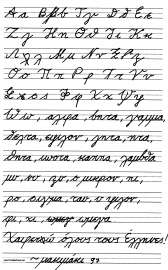 Α α Β β Γ γ Δ δ Ε ε
Ζ ζ Η η Θ θ Ι ι Κ κ
Λ λ Μ μ Ν ν Ξ ξ Ρ ρ
Ο ο Π π Ρ ρ Τ τ Υ υ
Σ σ ς Φ φ Χ χ Ψ ψ
Ω ω, αλφα, βητα, γαμμα,
δελτα, εψιλον, ζητα, ητα,
θητα, ιωτα, καππα, λαμβδα
μυ, νυ, ξι, ο μικρον, πι,
ρο, σιγμα, ταυ, υ ψιλον,
φι, χι, ωμεγα
Χαιρετισω όλους τους Έλληνες!